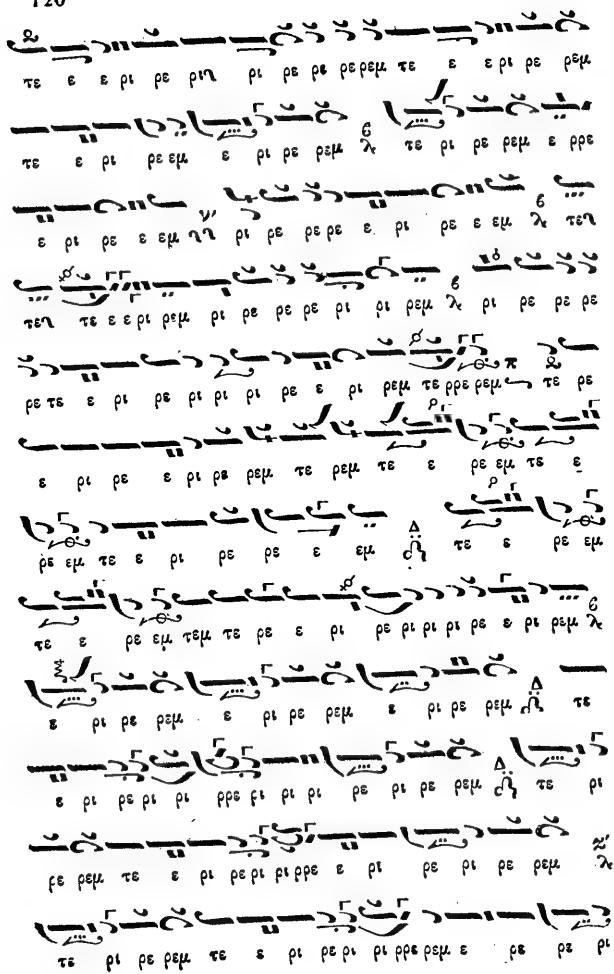 120
τε ε ε ρι ρε ρι ρε ρε ρε ρεμ τε ε ε ρι ρε ρεμ
τε ε ρι ρε εμ ε ρι ρε ρεμ τε ρι ρε ρεμ ε ρρε
ε ρι ρε ε εμ ρι ρε ρε ρε ε ρι ρε ε εμ
τε ε ε ρι ρεμ ρι ρε ρε ρε ρι ρι ρεμ ρι ρε ρε ρε
ρε τε ε ρι ρε ρι ρι ρι ρε ε ρι ρεμ τε ρρε ρεμ τε ρε
ε ρι ρε ε ρι ρε ρεμ τε ρεμ τε ε ρε εμ τε ε
ρε εμ τε ε ρι ρε ρε ε εμ τε ε ρε εμ
τε ε ρε εμ τεμ τε ρε ε ρι ρε ρι ρι ρι ρε ε ρι ρεμ
ε ρι ρε ρεμ ε ρι ρε ρεμ ε ρι ρε ρεμ τε
ε ρι ρε ρι ρι ρρε ρι ρι ρι ρε ρι ρε ρεμ τε ρι
ρε ρεμ τε ε ρι ρε ρι ρι ρρε ε ρι ρε ρι ρε ρεμ
τε ρι ρε ρεμ τε ε ρι ρε ρι ρι ρρε ρεμ ε ρε ρε ρι